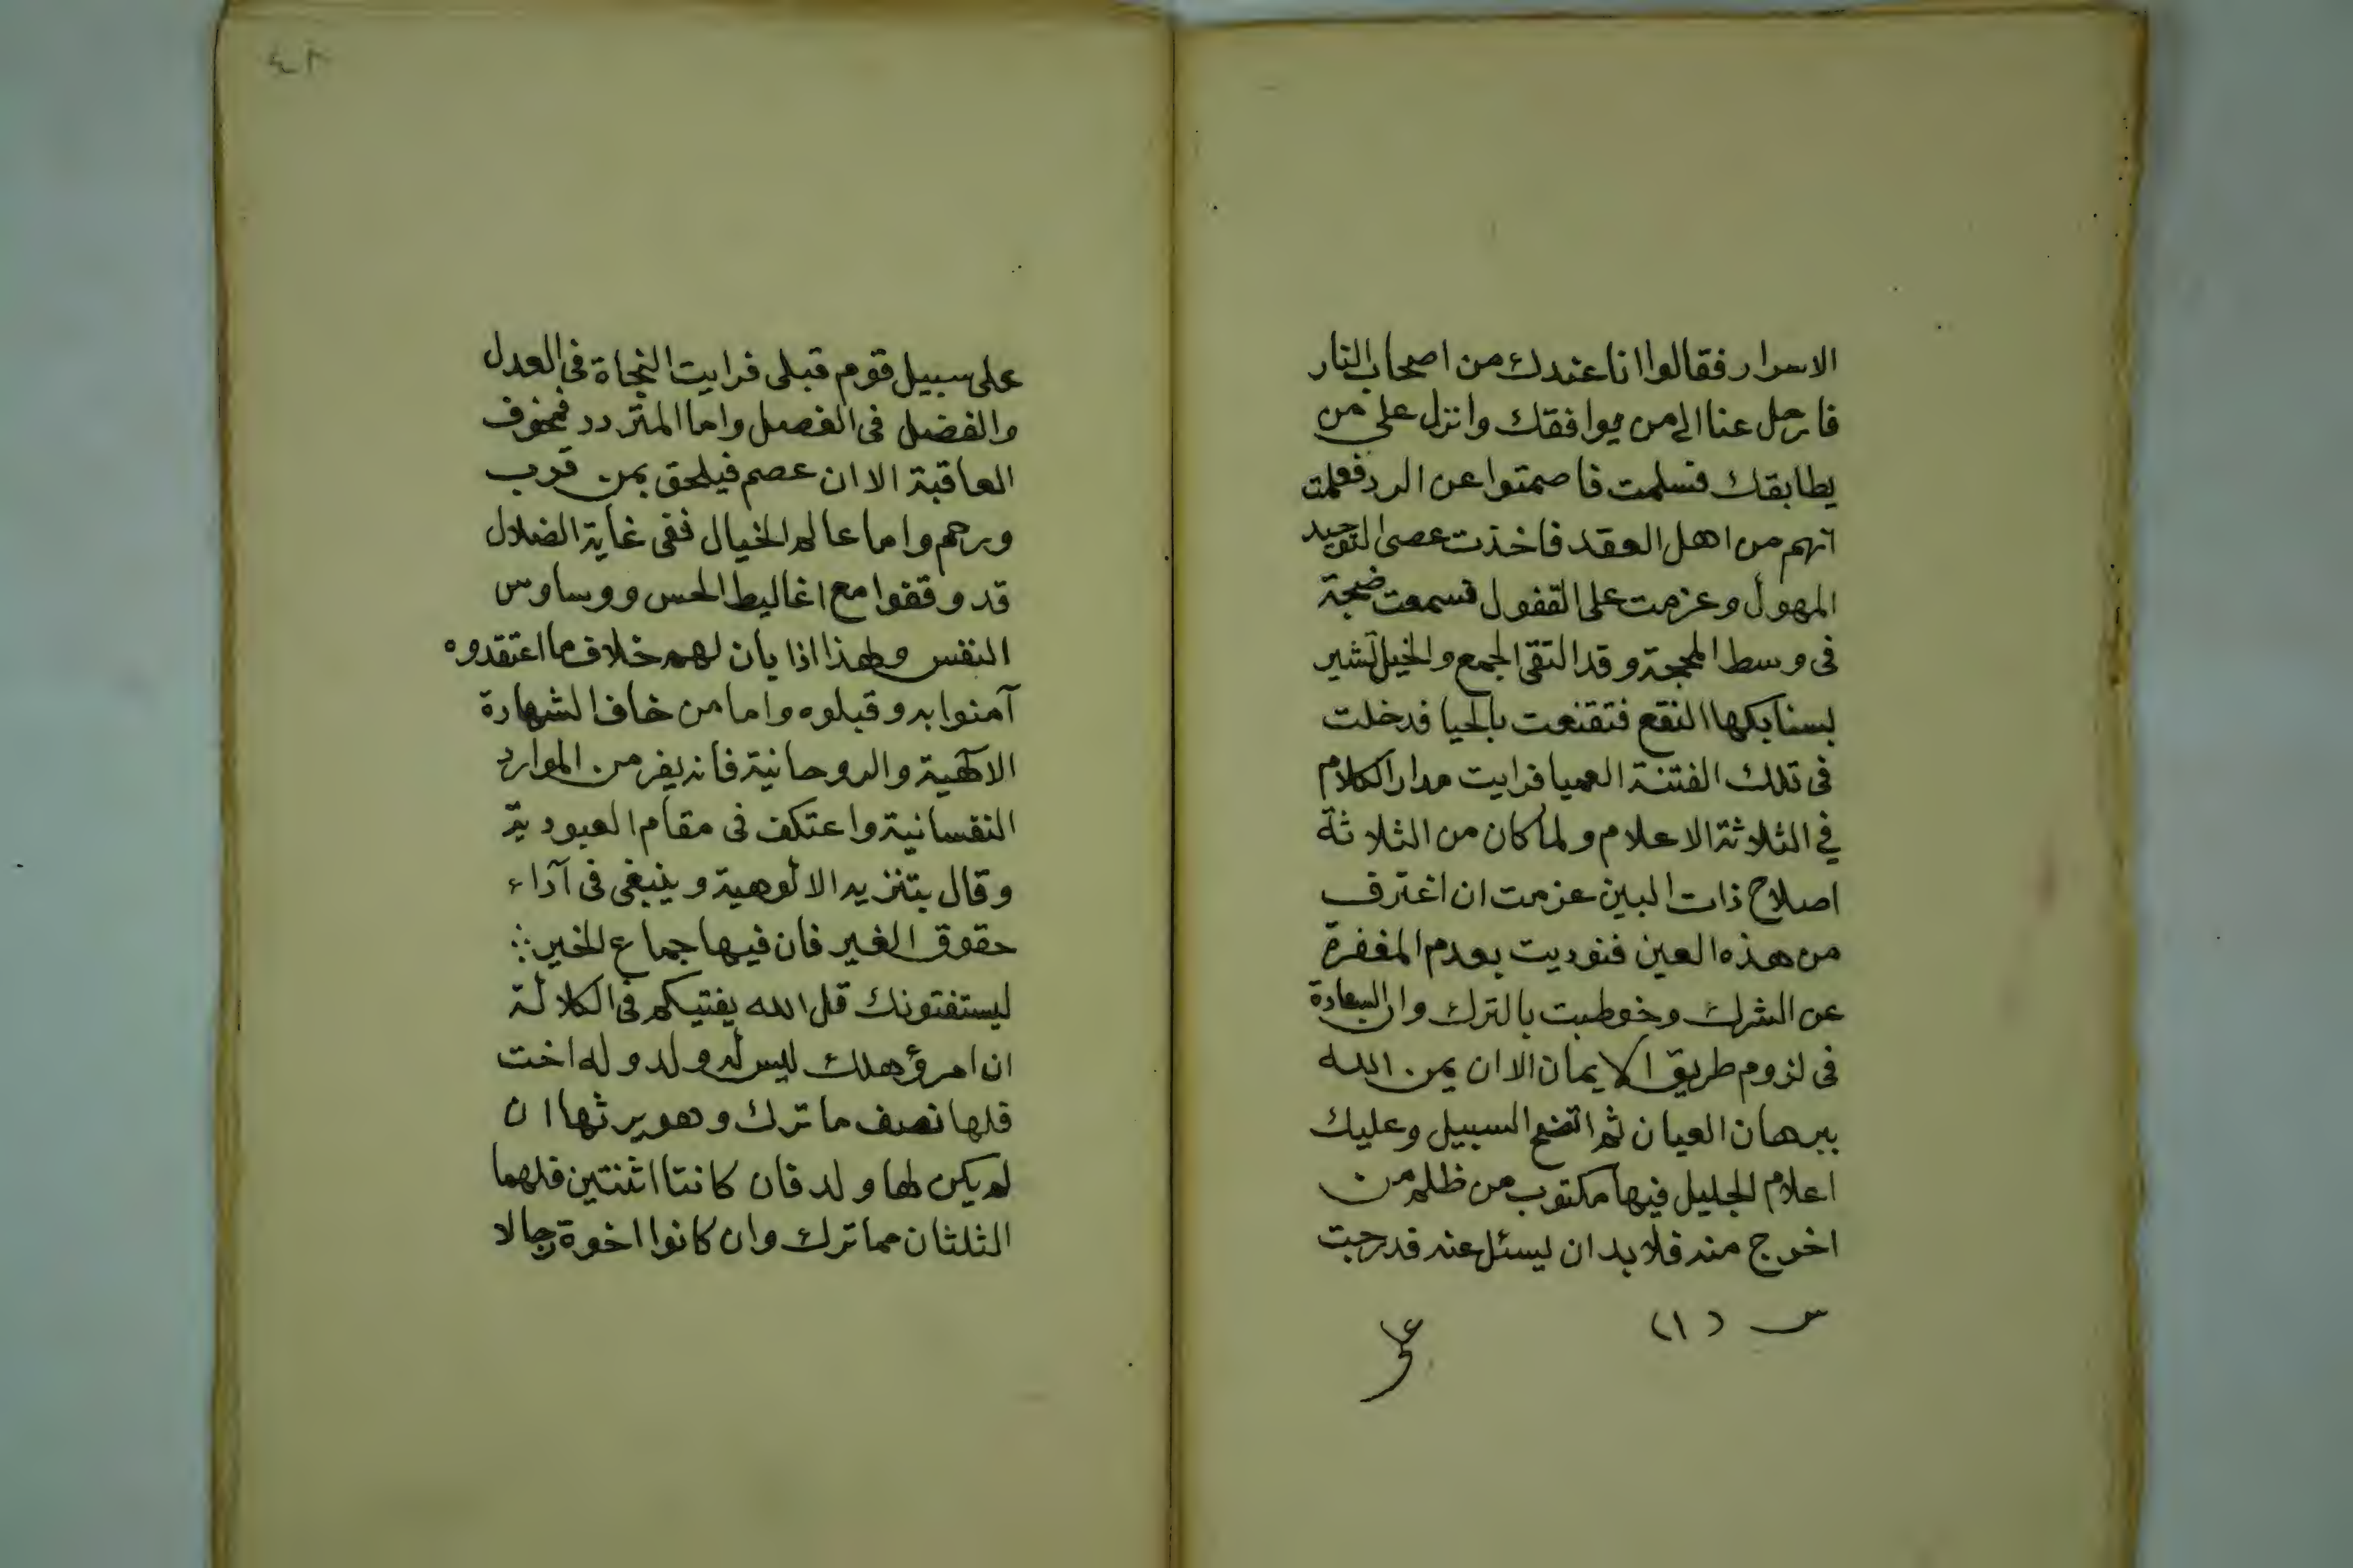 الاسرار فقالوا انا عندك من اصحاب النار
فارحل عنا الى من يوافقك وانزل على من
يطابقك فسلمت فاصمتوا عن الرد فعلمت
انهم من اهل العقد فاخذت عصى التوحيد
المهول وعزمت على القفول فسمعت ضجة
فى وسط المحجة وقد التقى الجمع والخيل تشير
بسنابكها النقع فتقنعت بالحيا فدخلت
فى تلك الفتنة العميا فرايت مدار الكلام
في الثلاثة الاعلام ولما كان من الثلاثة
اصلاح ذات البين عزمت ان اغترف
من هذه العين فنوديت بعدم المغفرة
عن الشرك وخوطبت بالترك وان السعادة
فى لزوم طريق الايمان الا ان يمن الله
ببرهان العيان ثم اتضح السبيل وعليك
اعلام الجليل فيها مكتوب من ظلم من
اخرج منه فلا بد ان يسئل عنه قد رحبت
س (١)
على
٤٣
على سبيل قوم قبلى فرايت النجاة فى العدل
والفضل فى الفصل واما المتردد فمخوف
العاقبة الا ان عصم فيلحق بمن قرب
ورحم واما عالم الخيال ففى غاية الضلال
قد وقفوا مع اغاليط الحس ووساوس
النفس ولهذا اذا بان لهم خلاف ما اعتقدوه
آمنوا به وقبلوه واما من خاف الشهادة
الالهية والروحانية فانه يفر من الموارد
النفسانية واعتكف فى مقام العبودية
وقال بتنزيه الالوهية وينبغى فى آداء
حقوق الغير فان فيها جماع الخير
يستفتونك قل الله يفتيكم فى الكلالة
ان امرؤ هلك ليس له ولد وله اخت
فلها نصف ما ترك وهو يرثها ان
لم يكن لها ولد فان كانتا اثنتين فلهما
الثلثان مما ترك وان كانوا اخوة رجالا